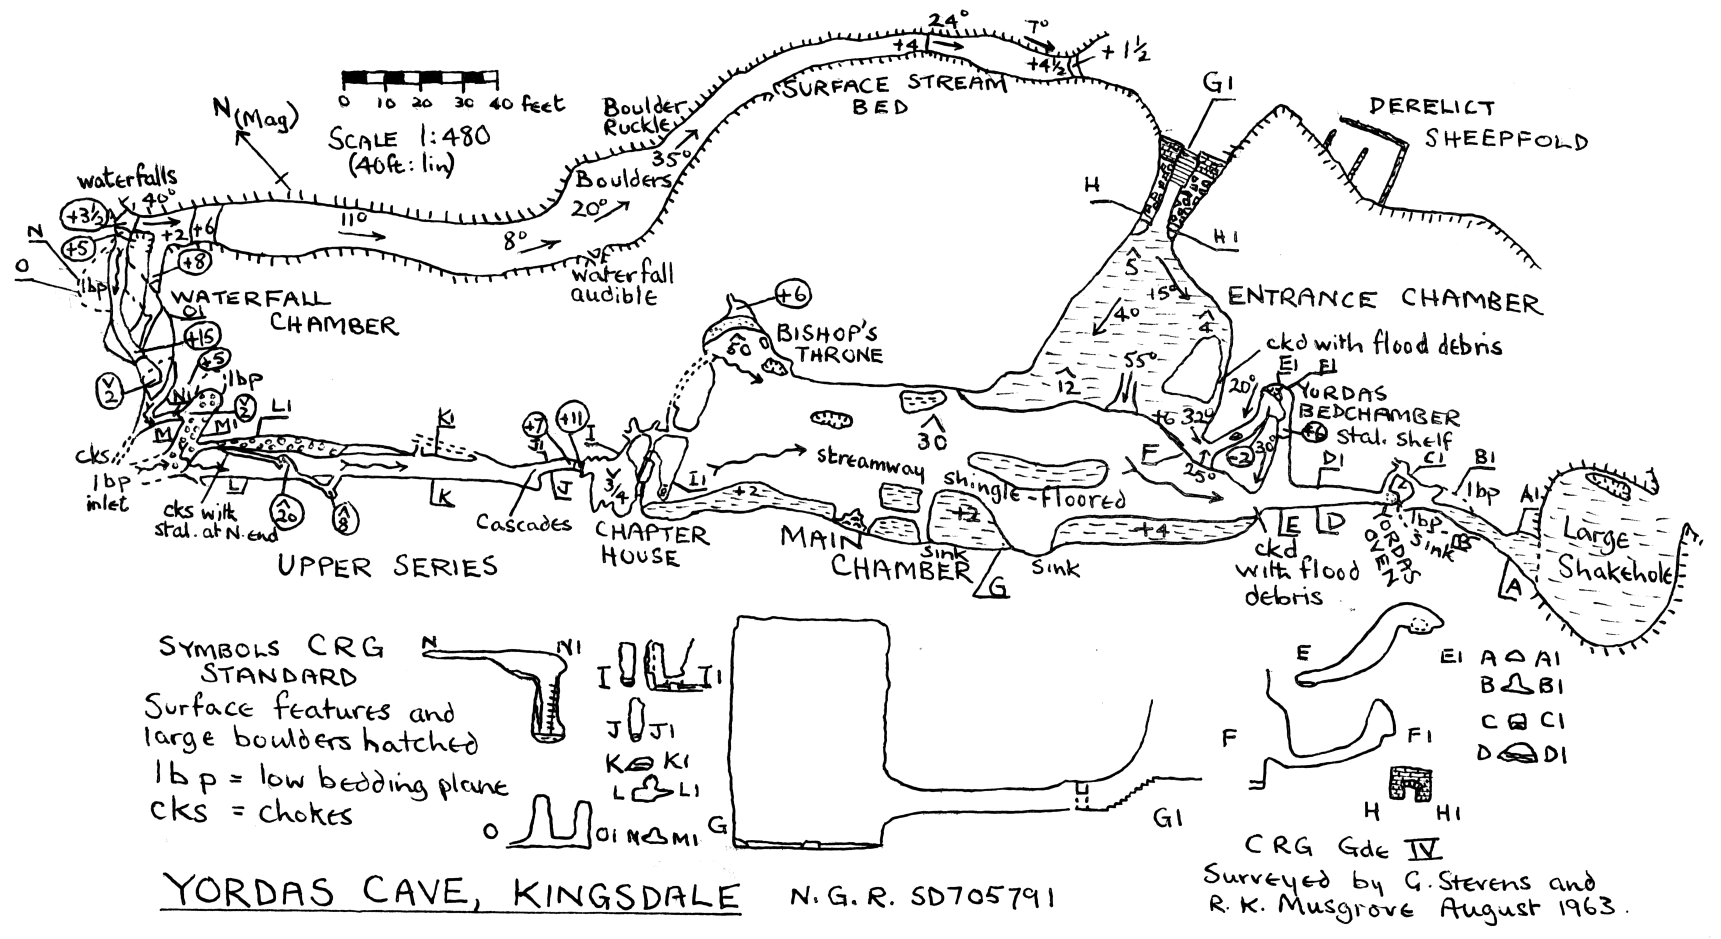 24°
7°
+4
+4½
+1½
SURFACE STREAM
BED
G1
DERELICT
SHEEPFOLD
0 10 20 30 40 feet
SCALE 1:480
(40ft: 1in)
N (Mag)
Boulder
Ruckle
35°
Boulders
20°
8°
11°
waterfall
audible
waterfalls
40°
+3½
+5
+2
+6
+8
N
O
lbp
WATERFALL
O1
CHAMBER
+15
+5
lbp
V
2
N1
V
2
M
M1
L1
K1
cks
lbp
inlet
cks with
stal. at N. end
L
^
20
^
8
K
UPPER SERIES
+7
+11
J1
J
I
Cascades
3/4
CHAPTER
HOUSE
I1
+6
BISHOP'S
THRONE
^
50
^
30
streamway
shingle-floored
+2
+2
+4
MAIN
CHAMBER
Sink
Sink
G
H
H1
^
5
15°
40
^
4
ENTRANCE CHAMBER
ckd with flood debris
^
12
55°
+6
32°
20°
E1
F1
YORDAS
BEDCHAMBER
+6
Stal. shelf
30°
-2
25°
F
D1
C1
B1
lbp
A1
E
D
ckd
with flood
debris
YORDAS
OVEN
lbp
Sink
B
A
Large
Shakehole
SYMBOLS CRG
STANDARD
Surface features and
large boulders hatched
lbp = low bedding plane
cks = chokes
N
N1
I
I1
J
J1
K
K1
L
L1
O
O1
M
M1
G
G1
E
E1
F
F1
H
H1
A
A1
B
B1
C
C1
D
D1
CRG Gde IV
Surveyed by G. Stevens and
R. K. Musgrove August 1963.
YORDAS CAVE, KINGSDALE
N.G.R. SD705791